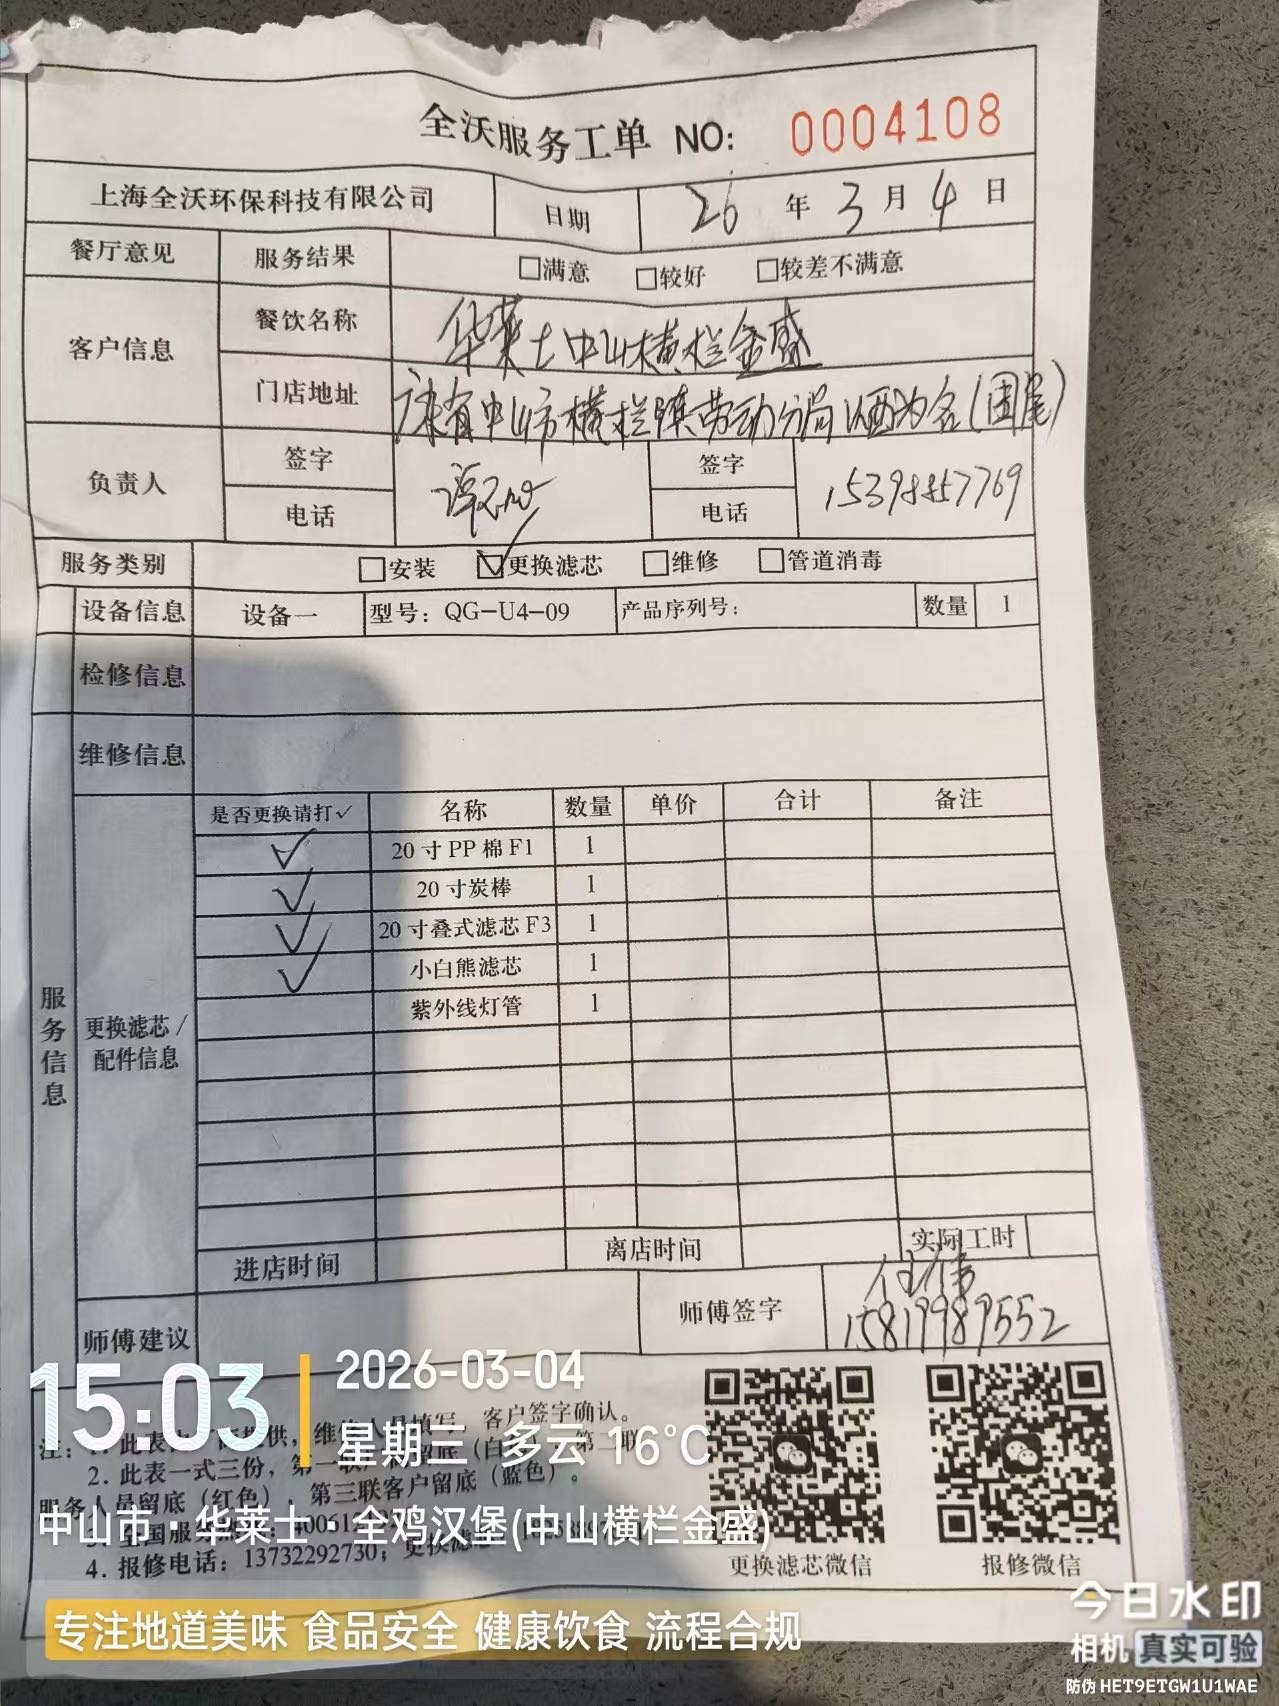 全沃服务工单 NO: 0004108
上海全沃环保科技有限公司 日期 26 年 3 月 4 日
餐厅意见 服务结果 □满意 □较好 □较差不满意
客户信息 餐饮名称 华莱士中山横栏金盛
门店地址 中山市横栏镇劳动分局以西
负责人 签字 签字
电话 电话 15398857769
服务类别 □安装 ☑更换滤芯 □维修 □管道消毒
设备信息 设备一 型号: QG-U4-09 产品序列号: 数量 1
检修信息
维修信息
服务信息
更换滤芯/配件信息
是否更换请打✓ 名称 数量 单价 合计 备注
✓ 20寸PP棉F1 1
✓ 20寸炭棒 1
✓ 20寸叠式滤芯F3 1
✓ 小白熊滤芯 1
紫外线灯管 1
进店时间 离店时间 实际工时
师傅建议 师傅签字
15819989552
15:03
2026-03-04
星期三 多云 16°C
中山市·华莱士·全鸡汉堡(中山横栏金盛)
客户签字确认。
2. 此表一式三份,
服务人员留底(红色),第三联客户留底(蓝色)。
4. 报修电话: 13732292730;
更换滤芯微信 报修微信
专注地道美味 食品安全 健康饮食 流程合规
今日水印
相机 真实可验
防伪 HET9ETGW1U1WAE